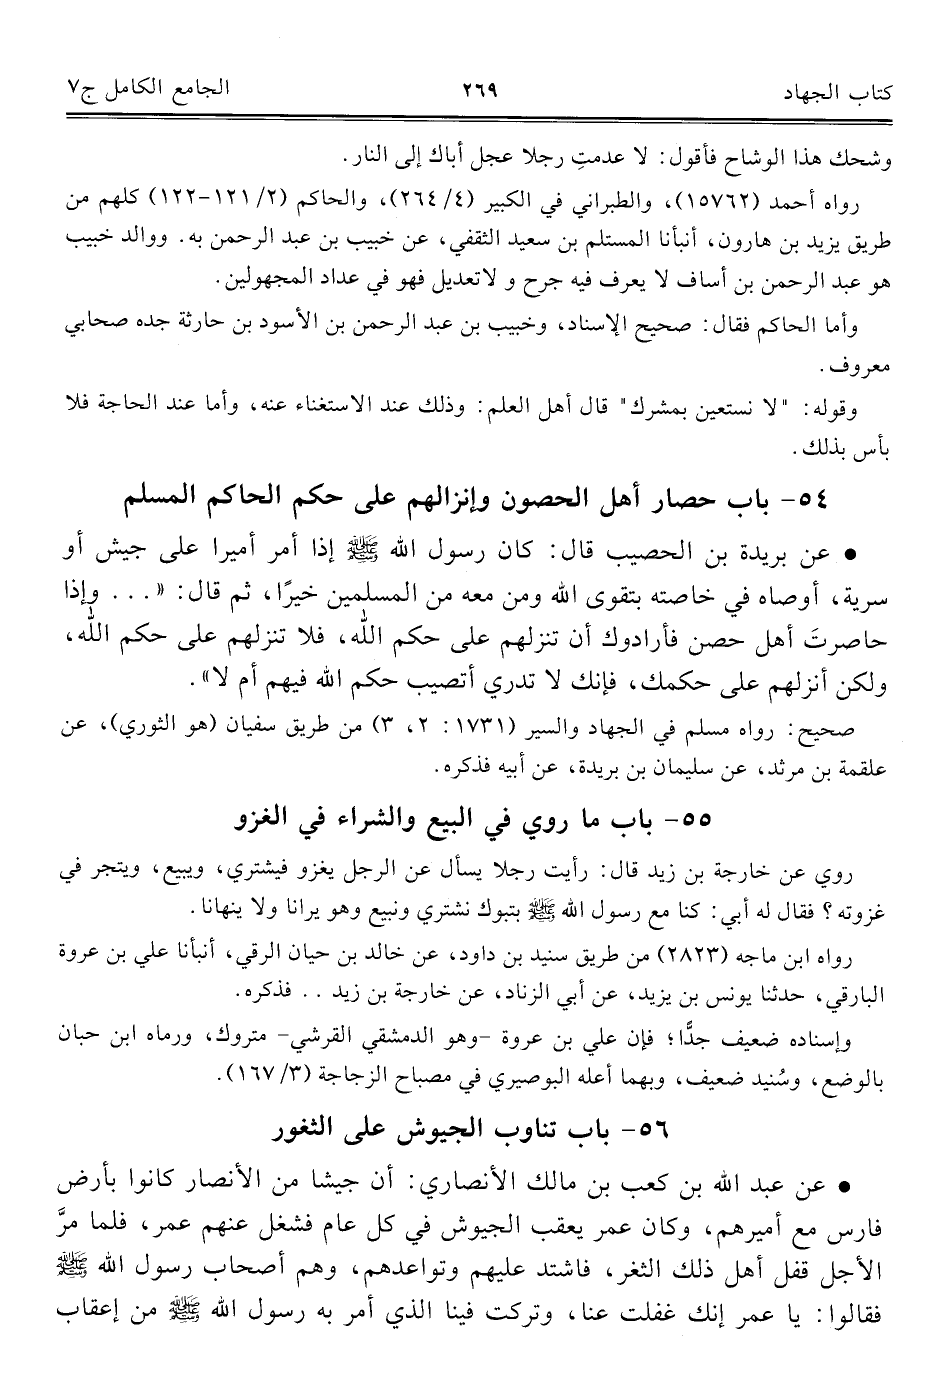 كتاب الجهاد ٢٦٩ الجامع الكامل ج٧
وشحك هذا الوشاح فأقول: لا عدمتِ رجلا عجل أباك إلى النار.
رواه أحمد (١٥٧٦٢)، والطبراني في الكبير (٤/ ٢٦٤)، والحاكم (٢/ ١٢١-١٢٢) كلهم من
طريق يزيد بن هارون، أنبأنا المستلم بن سعيد الثقفي، عن خبيب بن عبد الرحمن به. ووالد خبيب
هو عبد الرحمن بن أساف لا يعرف فيه جرح و لاتعديل فهو في عداد المجهولين.
وأما الحاكم فقال: صحيح الإسناد، وخبيب بن عبد الرحمن بن الأسود بن حارثة جده صحابي
معروف.
وقوله: "لا نستعين بمشرك" قال أهل العلم: وذلك عند الاستغناء عنه، وأما عند الحاجة فلا
بأس بذلك.
٥٤- باب حصار أهل الحصون وإنزالهم على حكم الحاكم المسلم
• عن بريدة بن الحصيب قال: كان رسول الله ﷺ إذا أمر أميرا على جيش أو
سرية، أوصاه في خاصته بتقوى الله ومن معه من المسلمين خيرًا، ثم قال: «... وإذا
حاصرتَ أهل حصن فأرادوك أن تنزلهم على حكم الله، فلا تنزلهم على حكم الله،
ولكن أنزلهم على حكمك، فإنك لا تدري أتصيب حكم الله فيهم أم لا».
صحيح: رواه مسلم في الجهاد والسير (١٧٣١: ٢، ٣) من طريق سفيان (هو الثوري)، عن
علقمة بن مرثد، عن سليمان بن بريدة، عن أبيه فذكره.
٥٥- باب ما روي في البيع والشراء في الغزو
روي عن خارجة بن زيد قال: رأيت رجلا يسأل عن الرجل يغزو فيشتري، ويبيع، ويتجر في
غزوته؟ فقال له أبي: كنا مع رسول الله ﷺ بتبوك نشتري ونبيع وهو يرانا ولا ينهانا.
رواه ابن ماجه (٢٨٢٣) من طريق سنيد بن داود، عن خالد بن حيان الرقي، أنبأنا علي بن عروة
البارقي، حدثنا يونس بن يزيد، عن أبي الزناد، عن خارجة بن زيد .. فذكره.
وإسناده ضعيف جدًّا؛ فإن علي بن عروة -وهو الدمشقي القرشي- متروك، ورماه ابن حبان
بالوضع، وسُنيد ضعيف، وبهما أعله البوصيري في مصباح الزجاجة (٣/ ١٦٧).
٥٦- باب تناوب الجيوش على الثغور
• عن عبد الله بن كعب بن مالك الأنصاري: أن جيشا من الأنصار كانوا بأرض
فارس مع أميرهم، وكان عمر يعقب الجيوش في كل عام فشغل عنهم عمر، فلما مرَّ
الأجل قفل أهل ذلك الثغر، فاشتد عليهم وتواعدهم، وهم أصحاب رسول الله ﷺ
فقالوا: يا عمر إنك غفلت عنا، وتركت فينا الذي أمر به رسول الله ﷺ من إعقاب